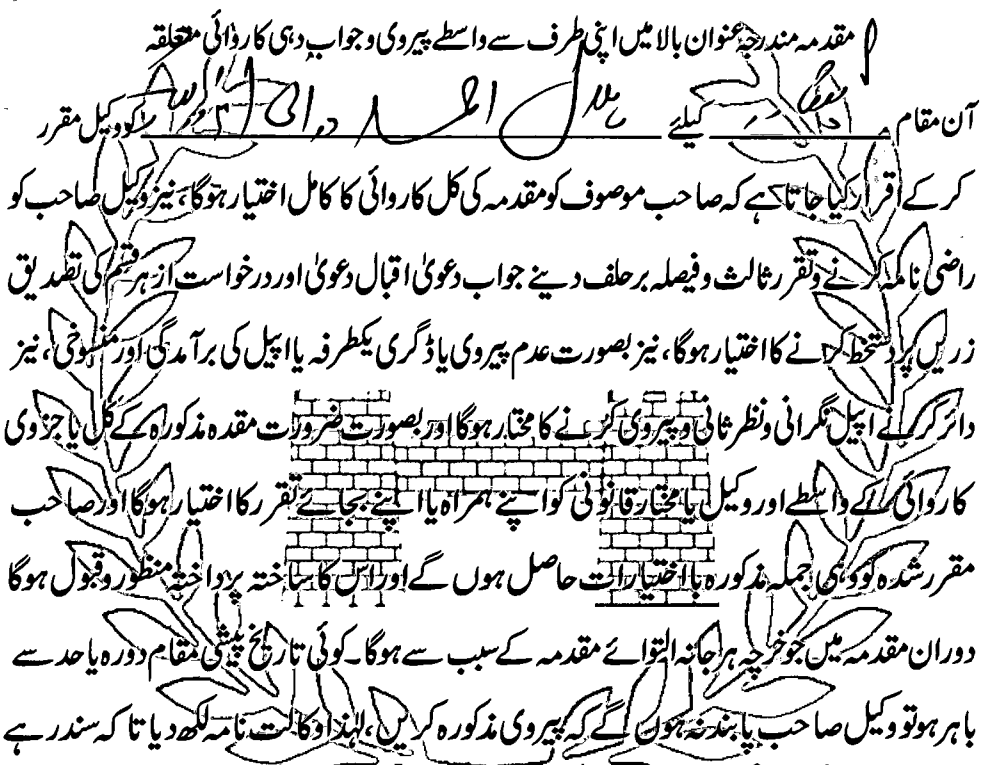 مقدمہ مندرجہ عنوان بالا میں اپنی طرف سے واسطے پیروی و جواب دہی کاروائی متعلقہ
آن مقام کیلئے بلال احمد درانی کو وکیل مقرر
کرکے اقرار کیا جاتا ہے کہ صاحب موصوف کو مقدمہ کی کل کاروائی کا کامل اختیار ہوگا، نیز وکیل صاحب کو
راضی نامہ کرنے و تقرر ثالث و فیصلہ بر حلف دینے جواب دعویٰ اقبال دعویٰ اور درخواست از ہر قسم کی تصدیق
زریں پر دستخط کرنے کا اختیار ہوگا، نیز بصورت عدم پیروی یا ڈگری یکطرفہ یا اپیل کی برآمدگی اور منسوخی، نیز
دائر کرنے اپیل نگرانی و نظر ثانی و پیروی کرنے کا مختار ہوگا اور بصورت ضرورت مقدہ مذکورہ کے کل یا جزوی
کاروائی کے واسطے اور وکیل یا مختار قانونی کو اپنے ہمراہ یا اپنے بجائے تقرر کا اختیار ہوگا اور صاحب
مقرر شدہ کو وہی جملہ مذکورہ با اختیارات حاصل ہوں گے اور اس کا ساختہ پرداختہ منظور و قبول ہوگا
دوران مقدمہ میں جو خرچہ ہرجانہ التوائے مقدمہ کے سبب سے ہوگا۔ کوئی تاریخ پیشی مقام دورہ یا حد سے
باہر ہو تو وکیل صاحب پابند نہ ہوں گے کہ پیروی مذکورہ کریں، لہٰذا وکالت نامہ لکھ دیا تا کہ سند رہے